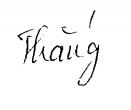 Thắng